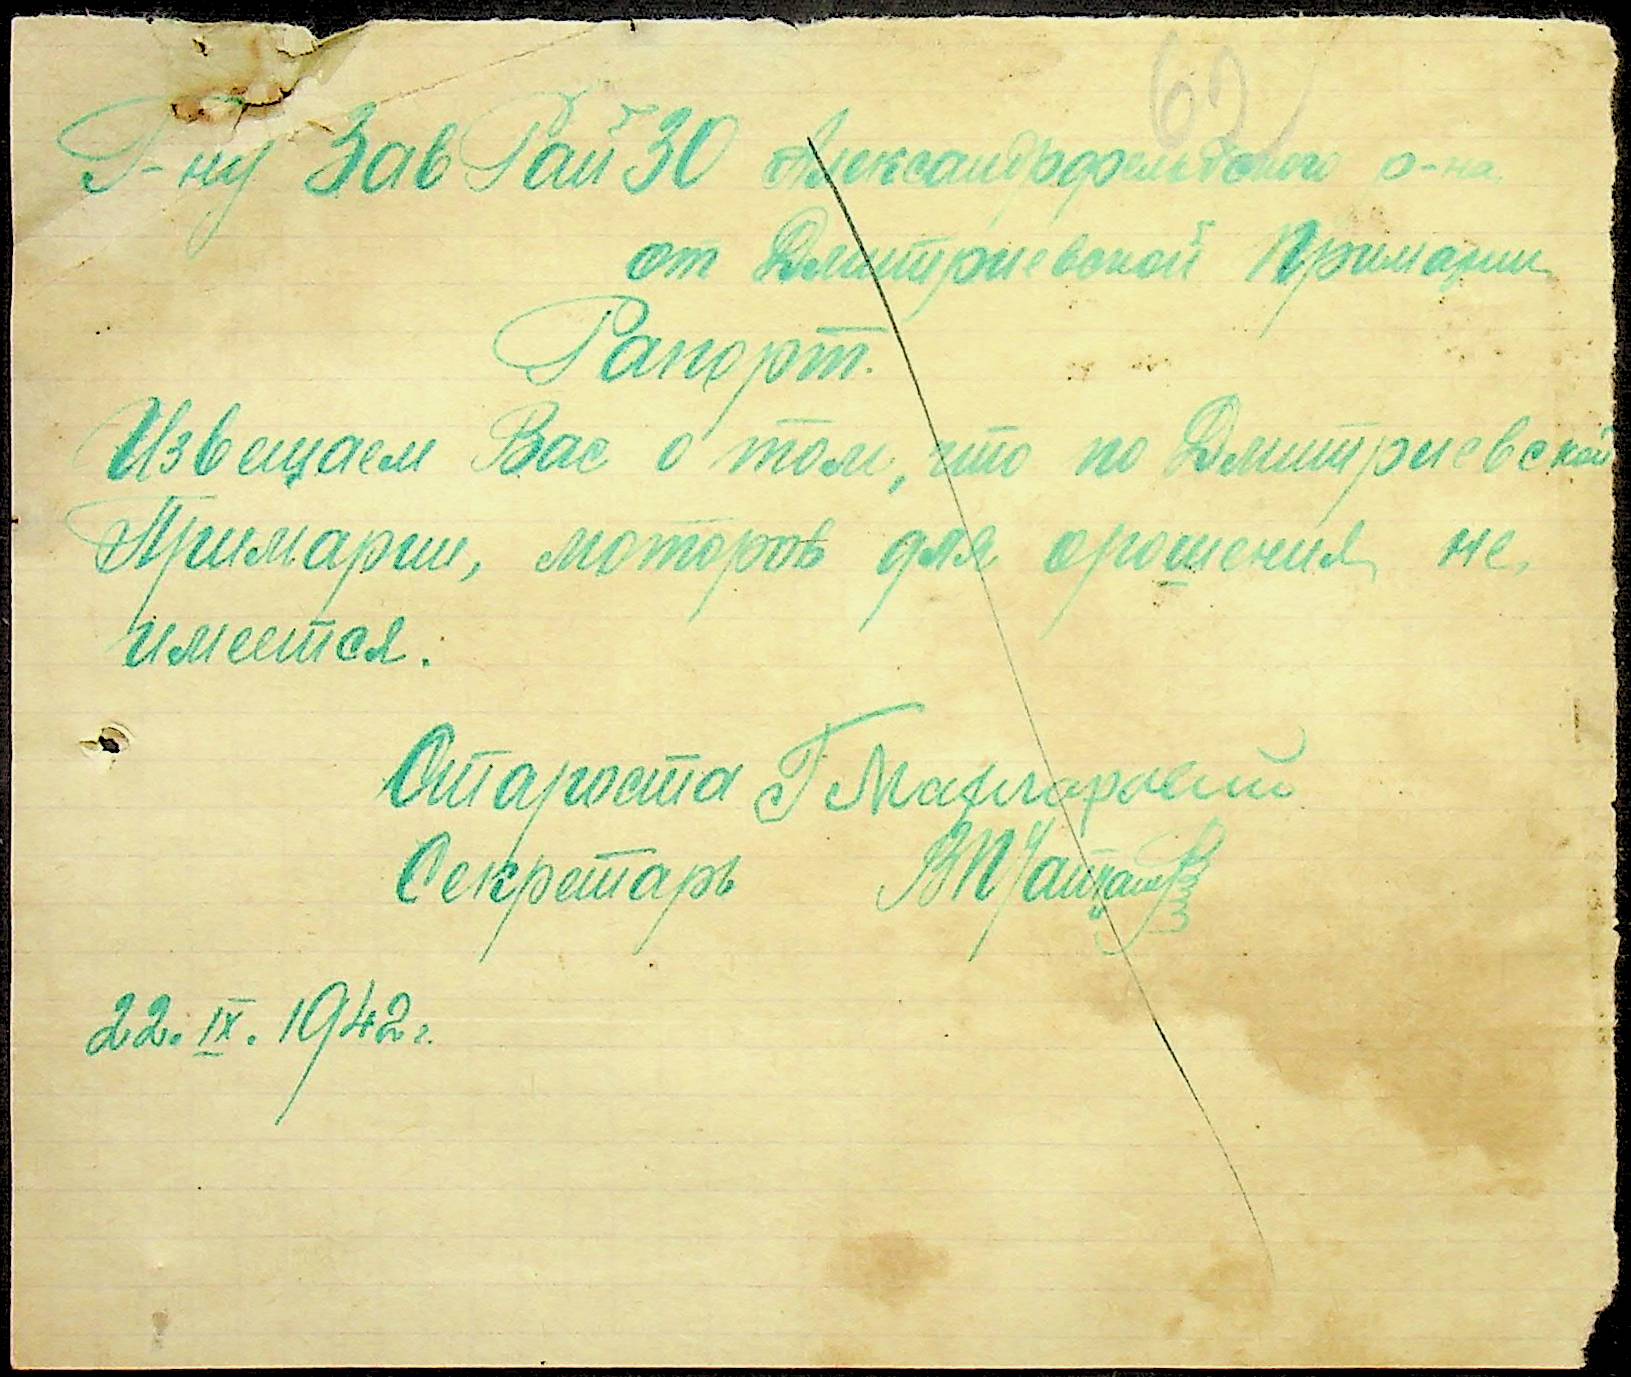 62
Г-ну ЗавРайЗО Александрфельдского р-на
от Дмитриевской Примарии
Рапорт.
Извещаем Вас о том, что по Дмитриевской
Примарии, моторов для орошения не
имеется.
Староста Г
Секретарь
22. IX. 1942 г.